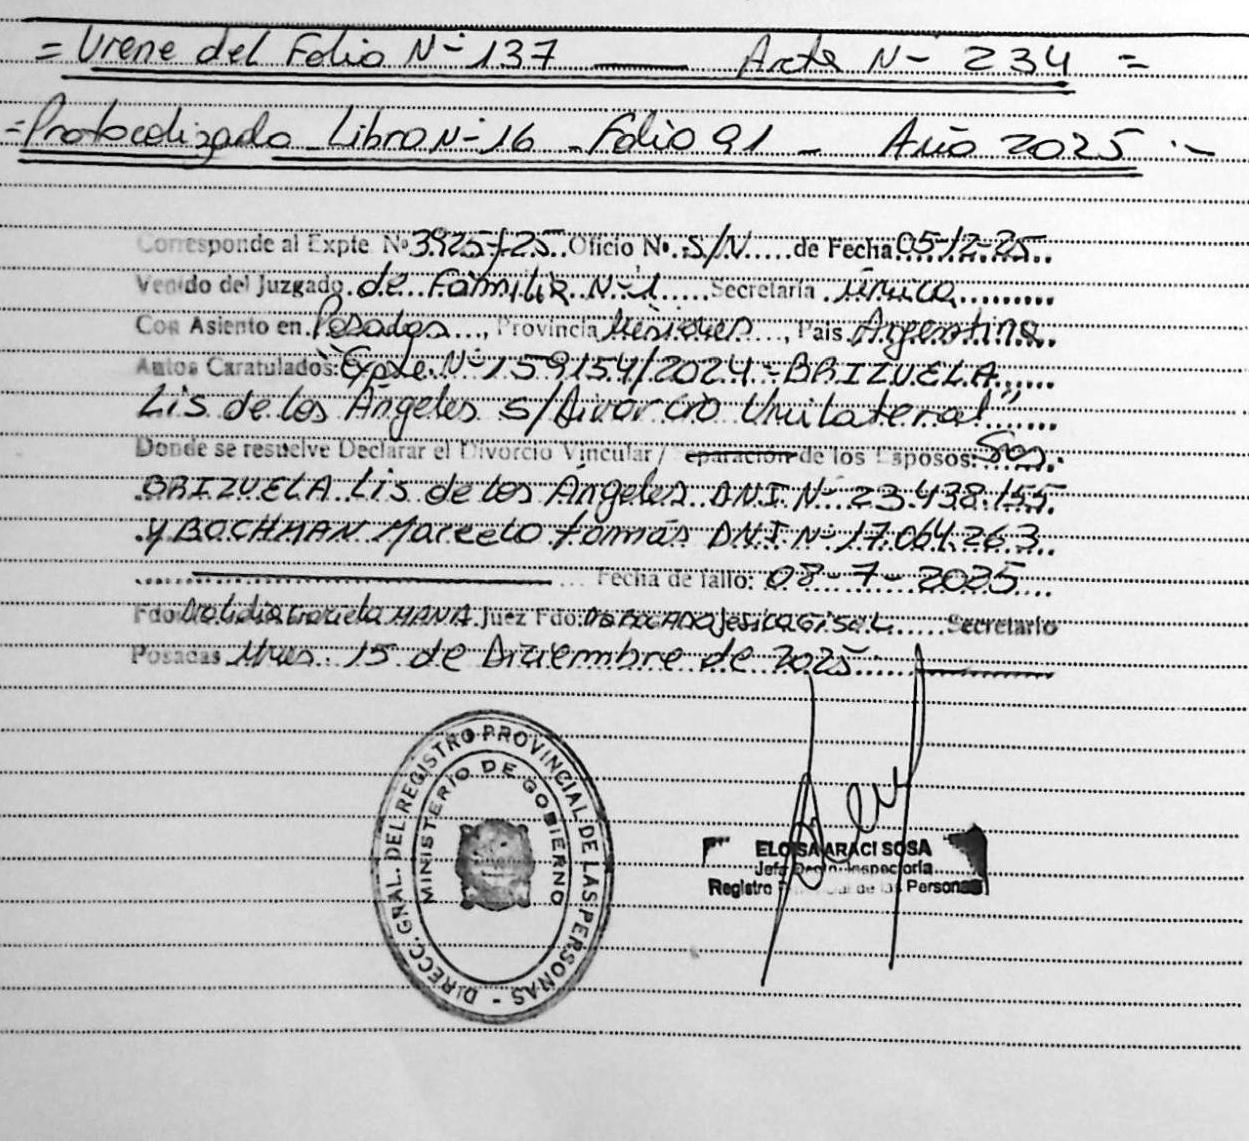 = Viene del Folio N- 137 —— Acta N- 234 =
= Protocolizado - Libro N- 16 - Folio 91 - Año 2025 .-
Corresponde al Expte Nº 3925/25 Oficio Nº. S/N ..... de Fecha 05-12-25
Venido del Juzgado. de Familia N-1 ..... Secretaría única
Con Asiento en Posadas ..., Provincia Misiones ..., Pais Argentina.
Autos Caratulados: Expte. N- 159154/2024 - BRIZUELA
Lis de los Ángeles s/Divorcio Unilateral"
Donde se resuelve Declarar el Divorcio Vincular/ eparación de los Esposos: Sres.
BRIZUELA Lis de los Ángeles DNI N- 23.438.155
y BOCHMAN Marcelo Tomás DNI N- 17.064.263
Fecha de fallo: 08-7-2025
Fdo MANA. Juez Fdo: Secretario
Posadas Mnes. 15 de Diciembre de 2025
DIRECC. GRAL. DEL REGISTRO PROVINCIAL DE LAS PERSONAS -
MINISTERIO DE GOBIERNO
ELOISA ARACI SOSA
Jefa Inspectoría
Registro de las Personas